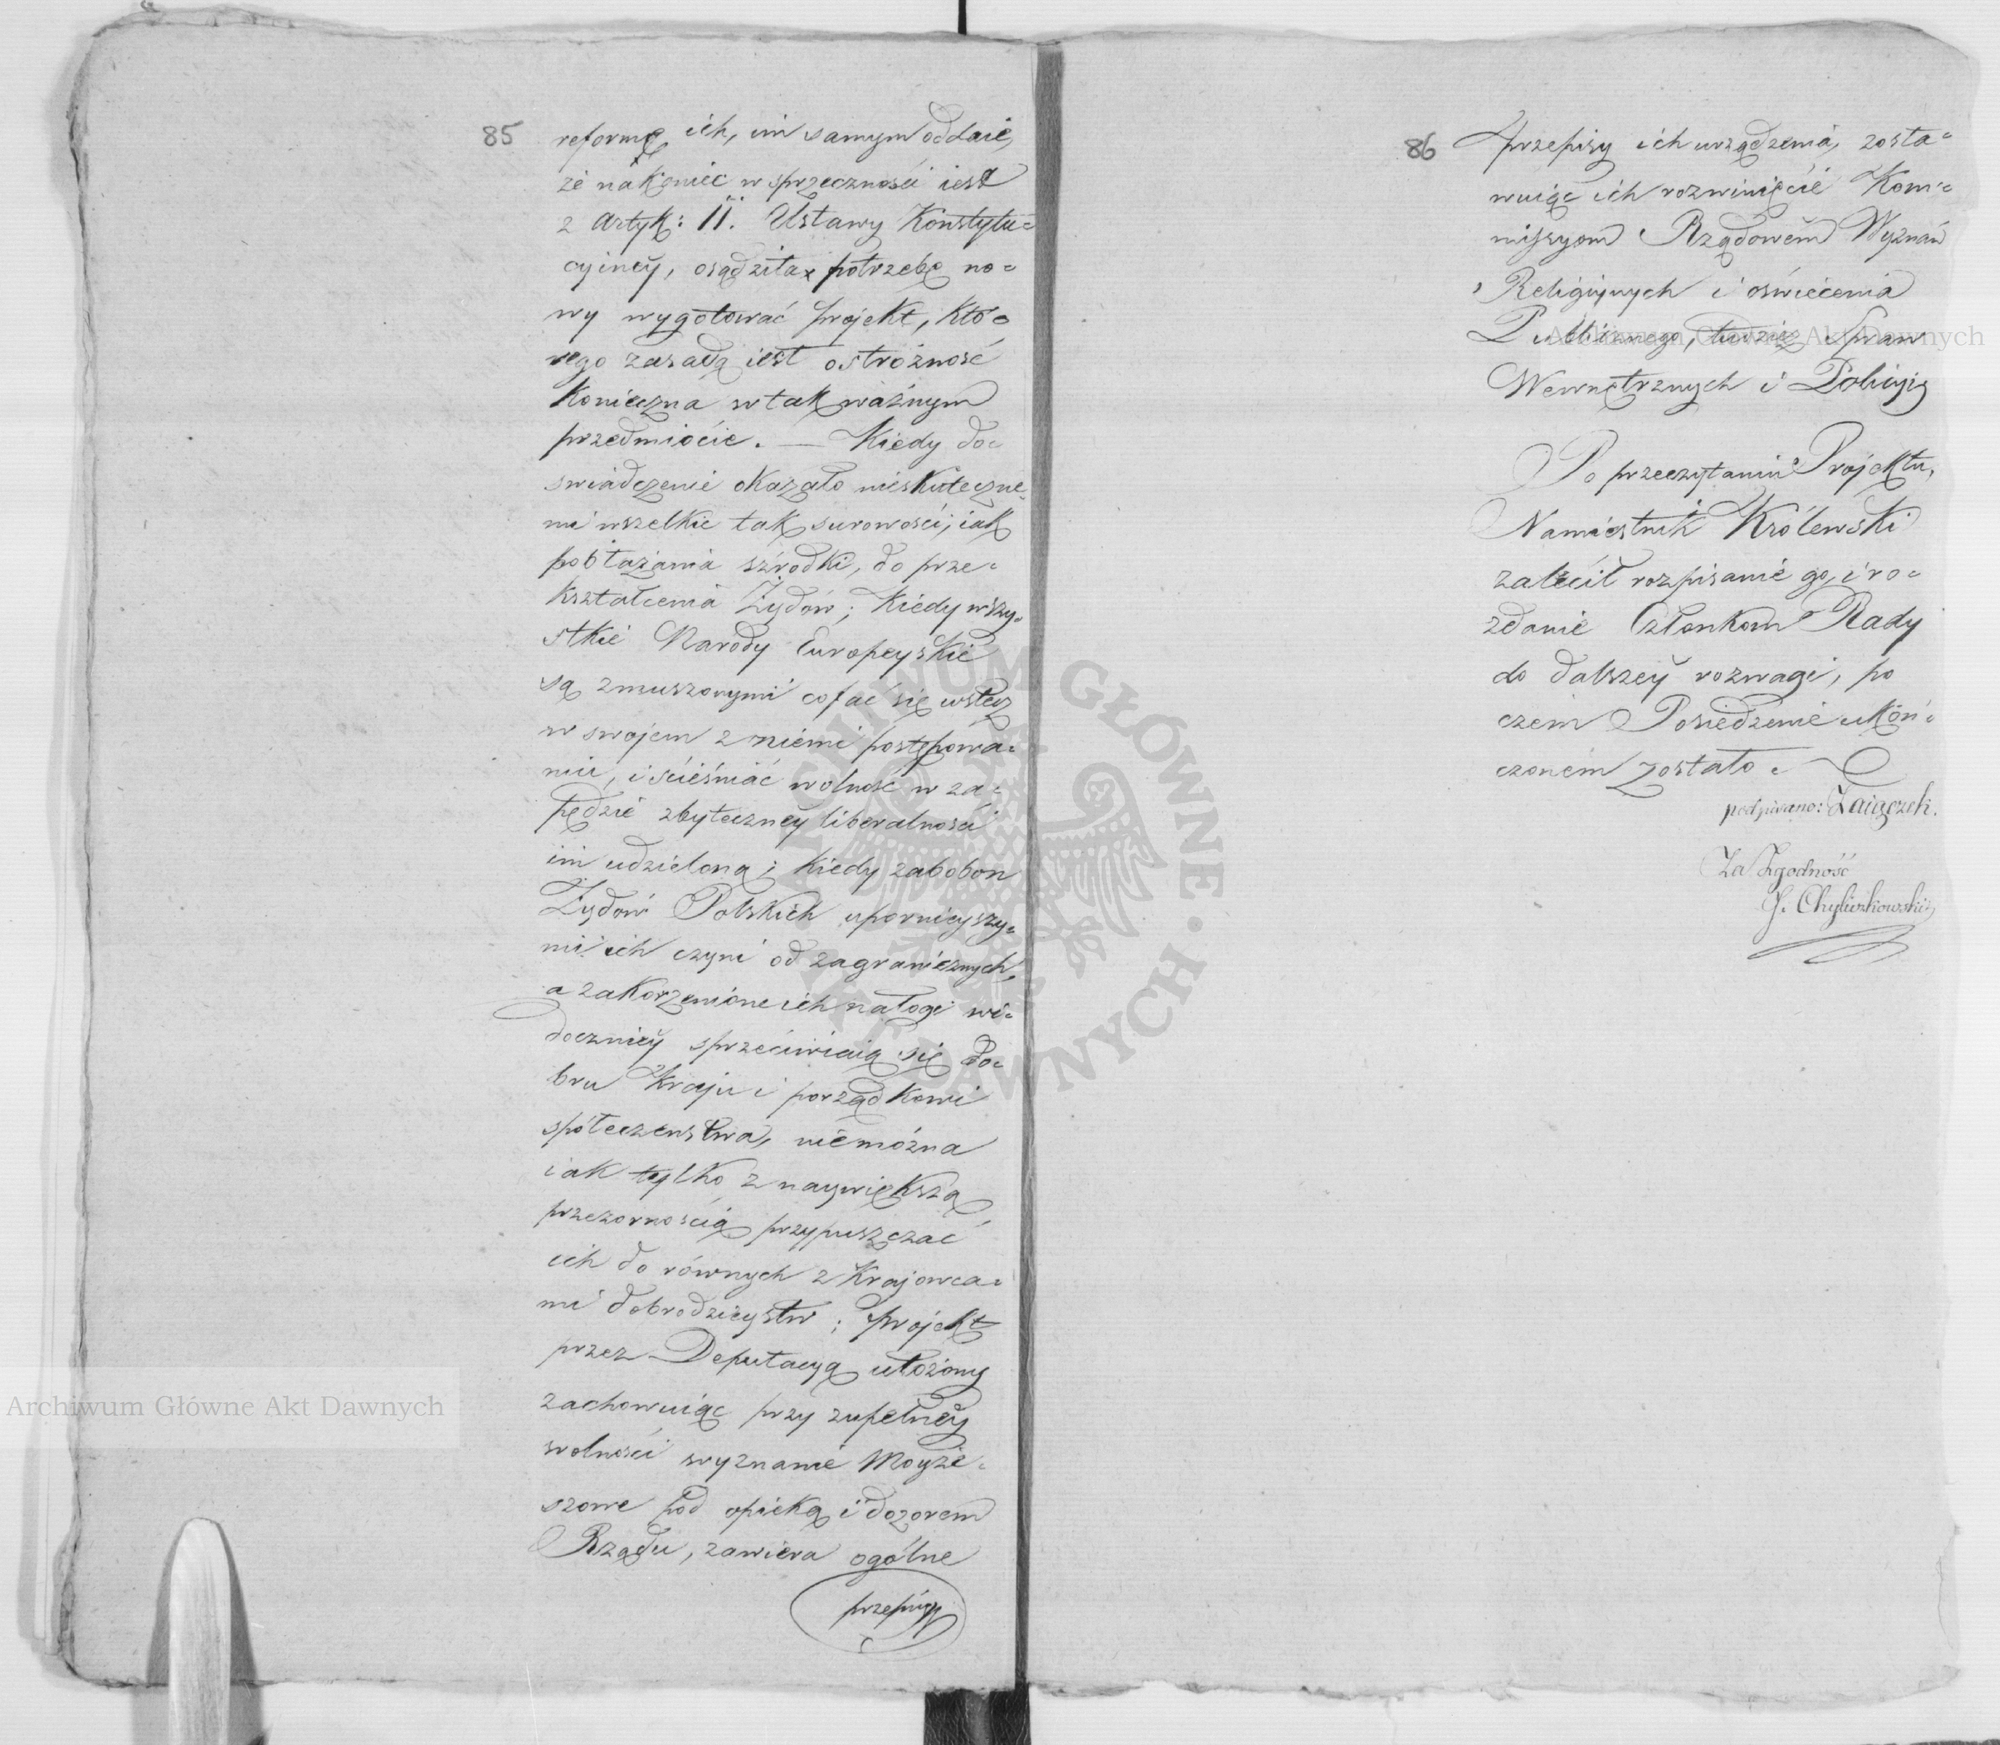 85
reformę ich, im samym oddaie,
że nakoniec w sprzeczności iest
z Artyk: 11. Ustawy Konstytu=
cyiney, osądziła potrzebę no=
wy wygotować projekt, któ=
rego zasadą iest ostrożność
konieczna w tak ważnym
przedmiocie. — Kiedy do=
swiadczenie okazało nieskuteczne=
mi wszelkie tak surowości, iak
pobłażania szrodki, do prze=
kształcenia Żydów; Kiedy wszy=
stkie Narody Europeyskie
są zmuszonymi cofać się wstecz
w swojem z niemi postępowa=
niu, i ścieśniać wolność w za=
pędzie zbyteczney liberalności
im udzieloną; Kiedy zabobon
Żydów Polskich upornieyszy=
mi ich czyni od zagranicznych,
a zakorzenione ich nałogi wi=
doczniey sprzeciwiaią się do=
bru Kraju i porządkowi
społeczenstwa, niemożna
iak tylko z naywiększą
przezornością przypuszczać
ich do równych z Krajowca=
mi dobrodzieystw; projekt
przez Deputacyą ułożony
zachowuiąc przy zupełney
wolności wyznanie Moyże=
szowe pod opieką i dozorem
Rządu, zawiera ogólne
przepisy
86
przepisy ich urządzenia, zosta=
wuiąc ich rozwinięcie Kom=
missyom Rządowem Wyznań
Religiynych i oświecenia
Publicznego, tudzież Spraw
Wewnętrznych i Policyi
Po przeczytaniu Projektu,
Namiestnik Królewski
zalecił rozpisanie go, i ro=
zdanie Członkom Rady
do dalszey rozwagi, po
czem Posiedzenie ukoń=
czonem zostało.
podpisano: Zaiączek.
Za Zgodność
J. Chyliczkowski
Archiwum Główne Akt Dawnych
Archiwum Główne Akt Dawnych
ARCHIWUM GŁÓWNE AKT DAWNYCH